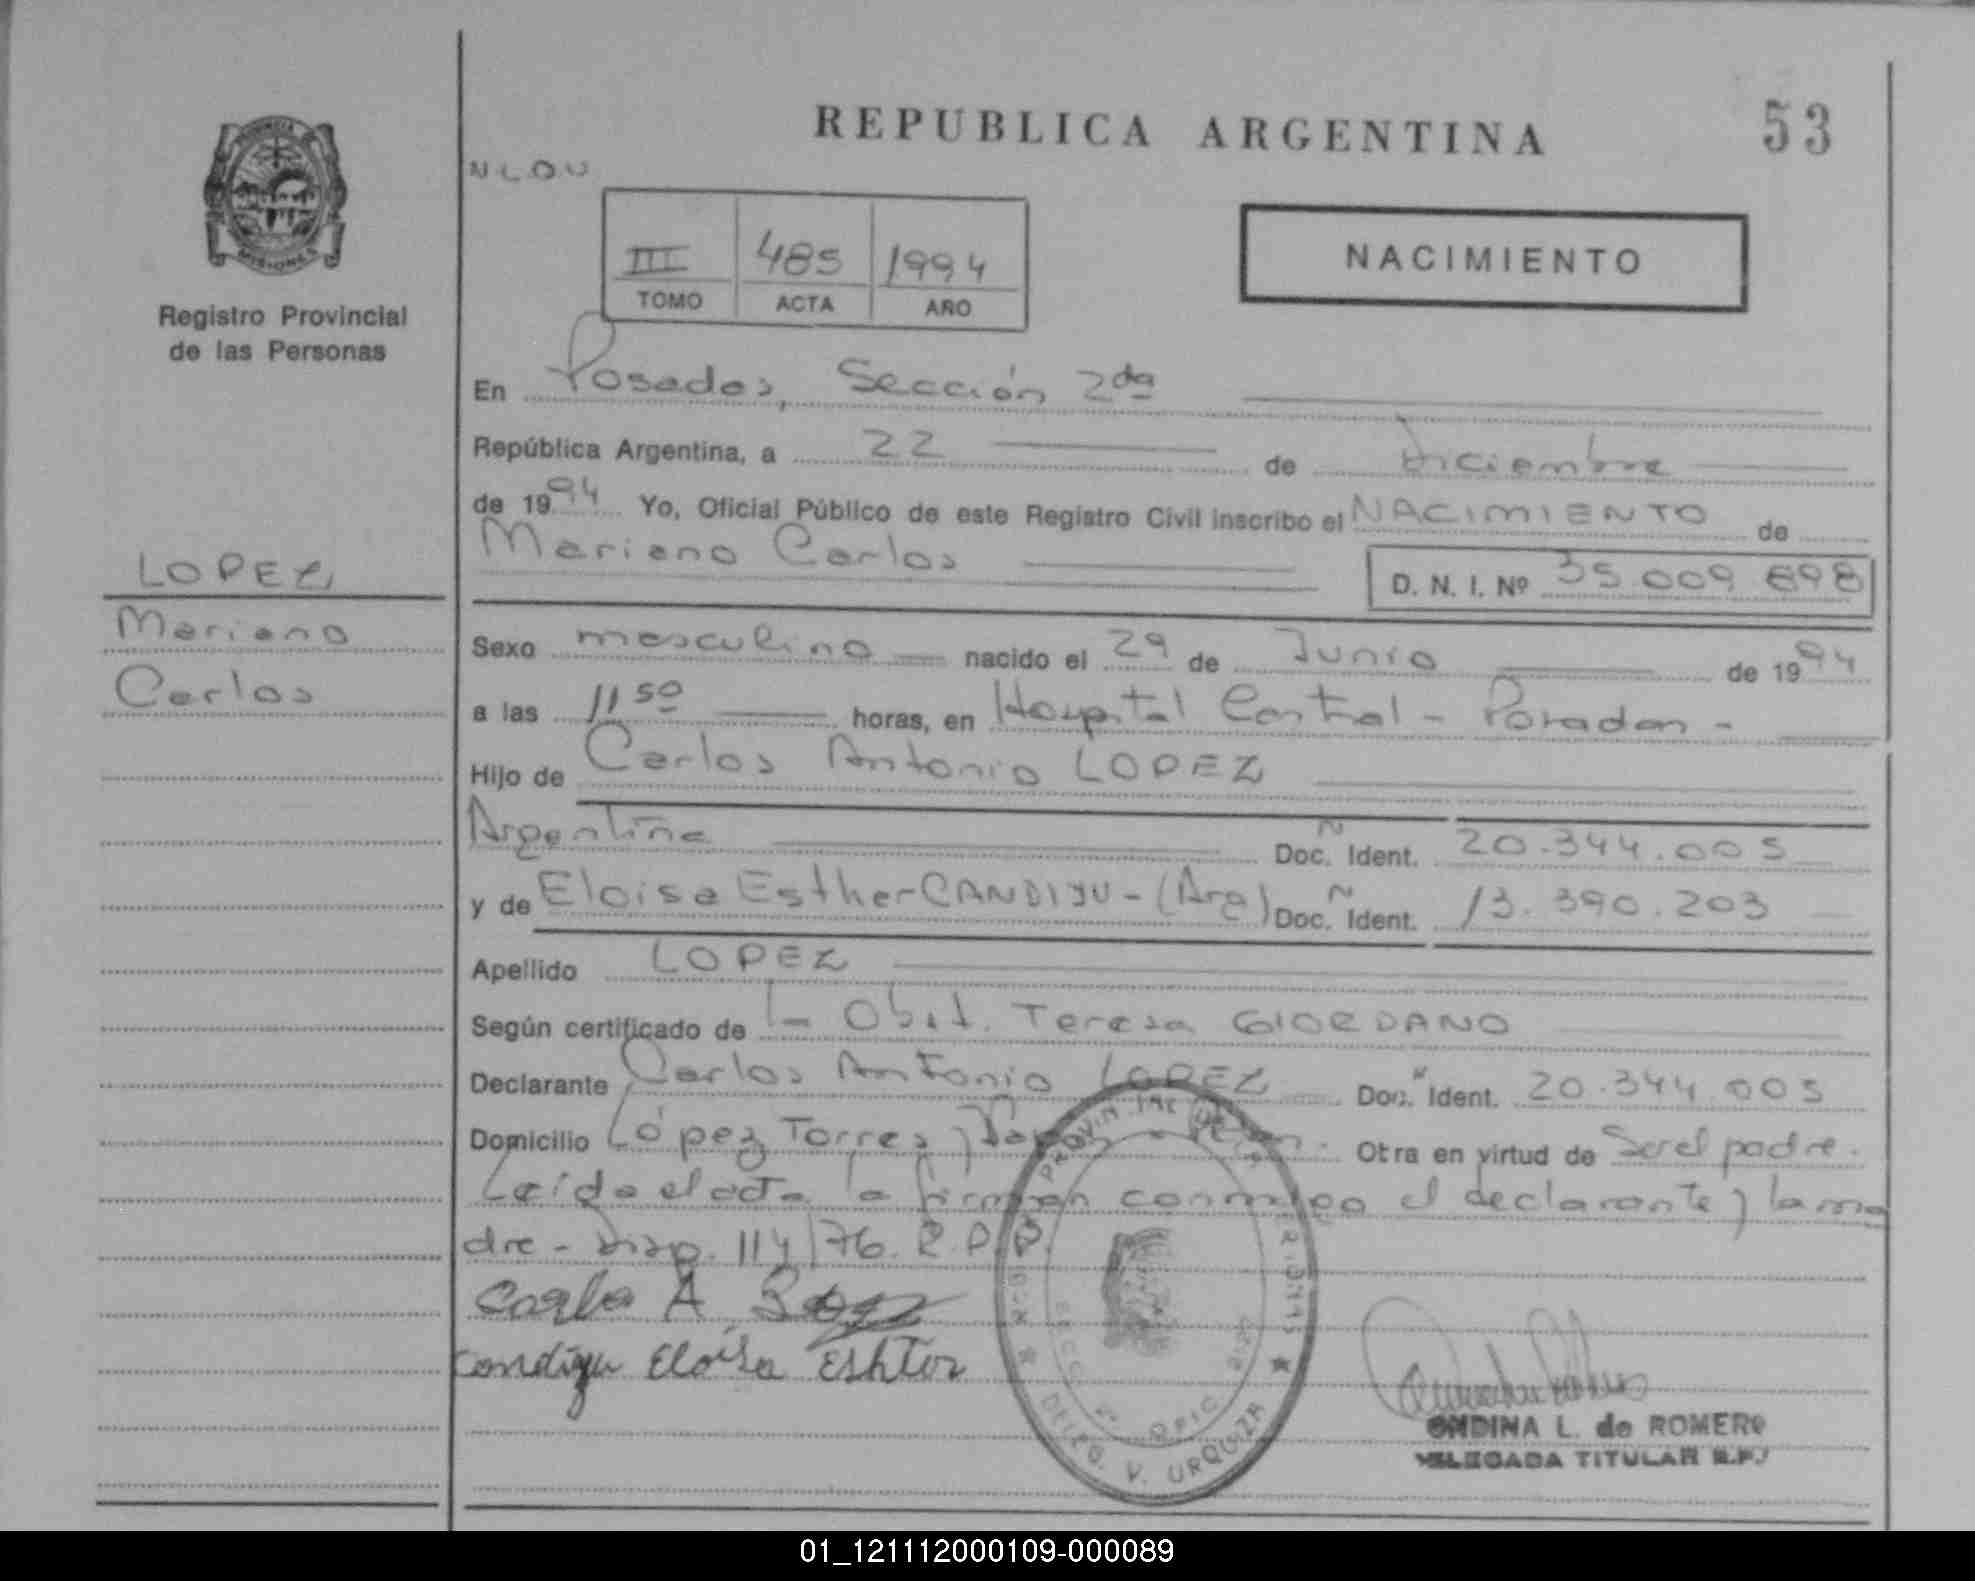 REPUBLICA ARGENTINA
53
MISIONES
Registro Provincial
de las Personas
III 485 1994
TOMO ACTA AÑO
NACIMIENTO
En Posadas, Sección 2da
República Argentina, a 22 de Diciembre
de 1994 Yo, Oficial Público de este Registro Civil inscribo el NACIMIENTO de
Mariano Carlos
D. N. I. Nº 35.009.898
LOPEZ
Mariano
Carlos
Sexo masculino nacido el 29 de Junio de 1994
a las 11 50 horas, en Hospital Central - Posadas -
Hijo de Carlos Antonio LOPEZ
Argentina Doc. Ident. 20.344.005
y de Eloisa Esther CANDIYU - (Arg) Doc. Ident. 13.390.203
Apellido LOPEZ
Según certificado de Obst. Teresa GIORDANO
Declarante Carlos Antonio LOPEZ Doc. Ident. 20.344.005
Domicilio López Torres y Otra en virtud de Ser el padre.
Leída el acta la firman conmigo el declarante y la ma
dre - Disp. 114/76. R.P.P.
Carlo A
Condiyu Eloisa Eshter
DELEG. V. URQUIZA
ONDINA L. de ROMERO
DELEGADA TITULAR R.P.
01_121112000109-000089